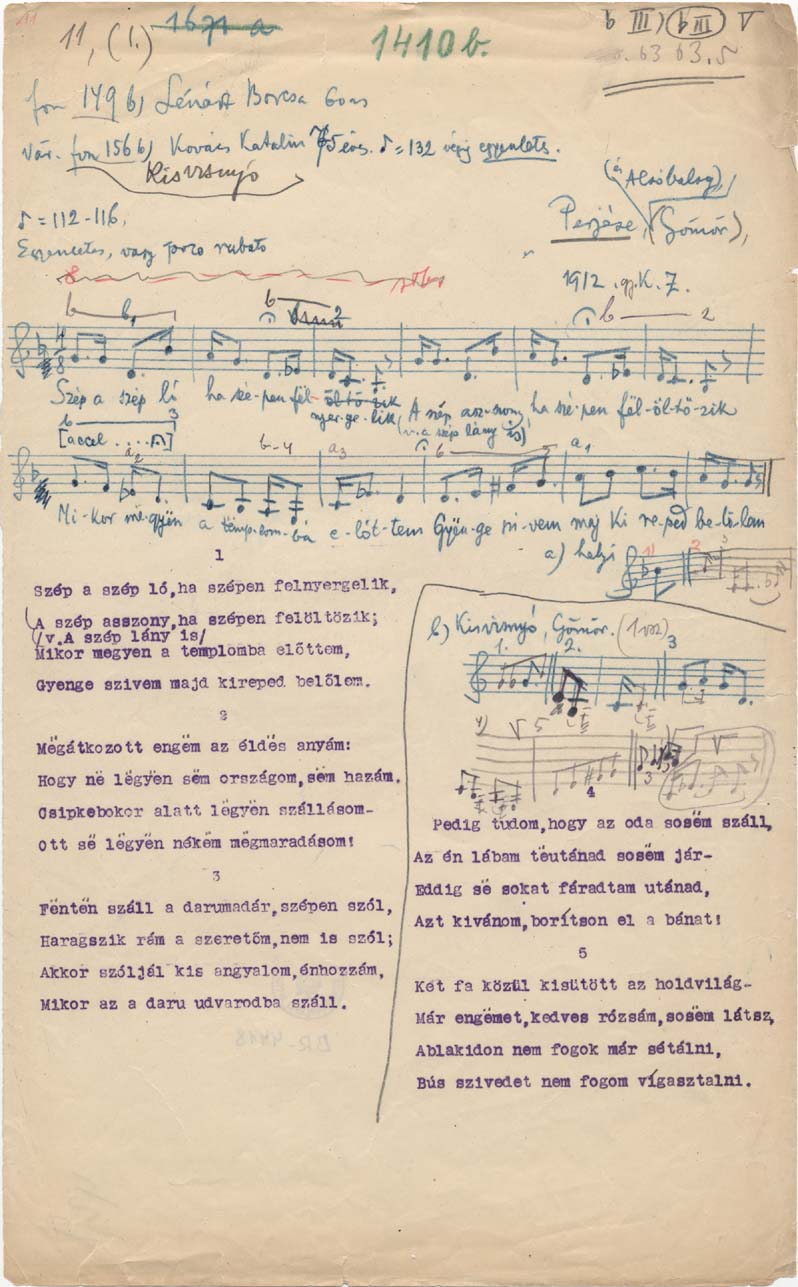 11
11, (1.)
1671 a
1410 b.
b III) (b III) V
63 63.5
fon 149 b) Lénárt Borcsa
Vár. fon 156 b) Kovács Katalin 75 éves. ♪=132 végig egyenletes.
Kisvisnyó
(és Alsóbalog),
♪=112-116.
Perjése, (Gömör),
Egyenletes, vagy poco rubato
1912. gy. K. Z.
Szép a szép ló ha szé-pen fël- öl-tö-zik
nyer-ge-lik, A szép asz-szony, ha szé-pen föl-öl-tö-zik
(v. a szép lány is)
[accel. . . .]
Mi-kor më-gyën a temp-lom-ba e-lőt-tem Gyën-ge szi-vem maj ki re-ped be-lő-lem
a) helyi
1
Szép a szép ló,ha szépen felnyergelik,
A szép asszony,ha szépen felöltözik;
/v.A szép lány is/
Mikor megyen a templomba előttem,
Gyenge szivem majd kireped belőlem.
2
Mëgátkozott engëm az éldës anyám:
Hogy në lëgyën sëm országom,sëm hazám.
Csipkebokor alatt lëgyën szállásom-
Ott së lëgyën nékëm mëgmaradásom!
3
Fëntën száll a darumadár,szépen szól,
Haragszik rám a szeretőm,nem is szól;
Akkor szóljál kis angyalom,énhozzám,
Mikor az a daru udvarodba száll.
b) Kisvisnyó, Gömör. (1 vsz)
1. 2. 3
4) V 5
4
Pedig tudom,hogy az oda sosëm száll,
Az én lábam tëutánad sosëm jár-
Eddig së sokat fáradtam utánad,
Azt kivánom,borítson el a bánat!
5
Két fa közül kisütött az holdvilág-
Már engëmet,kedves rózsám,sosëm látsz,
Ablakidon nem fogok már sétálni,
Bús szivedet nem fogom vígasztalni.